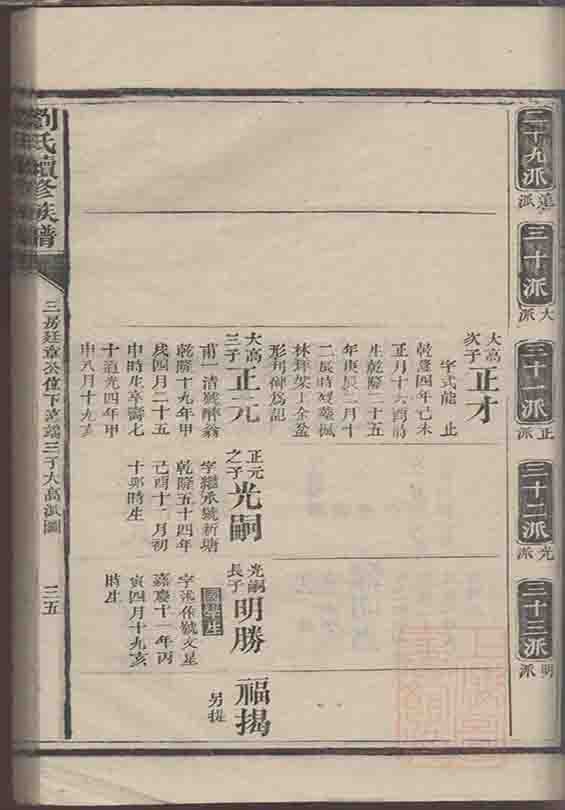 二十九派
派
三十派
大派
三十一派
正派
三十二派
光派
三十三派
明派
大高
次子
正才
字式能 止
乾隆四年己未
正月十六酉時
生乾隆三十五
年庚辰三月十
二辰時
林
形刋碑為記
大高
三子
正元
甫一清號醉翁
乾隆十九年甲
戌四月二十五
申時生卒壽七
十道光四年甲
申八月十九亥
正元
之子
光嗣
字繼承號新塘
乾隆五十四年
己酉十二月初
十卯時生
光嗣
長子
明勝
國學生
號文星
嘉慶十一年丙
寅四月十九亥
時生
福揭
另提
劉氏續修族譜
三房廷章公位下 三子大高派圖
三五